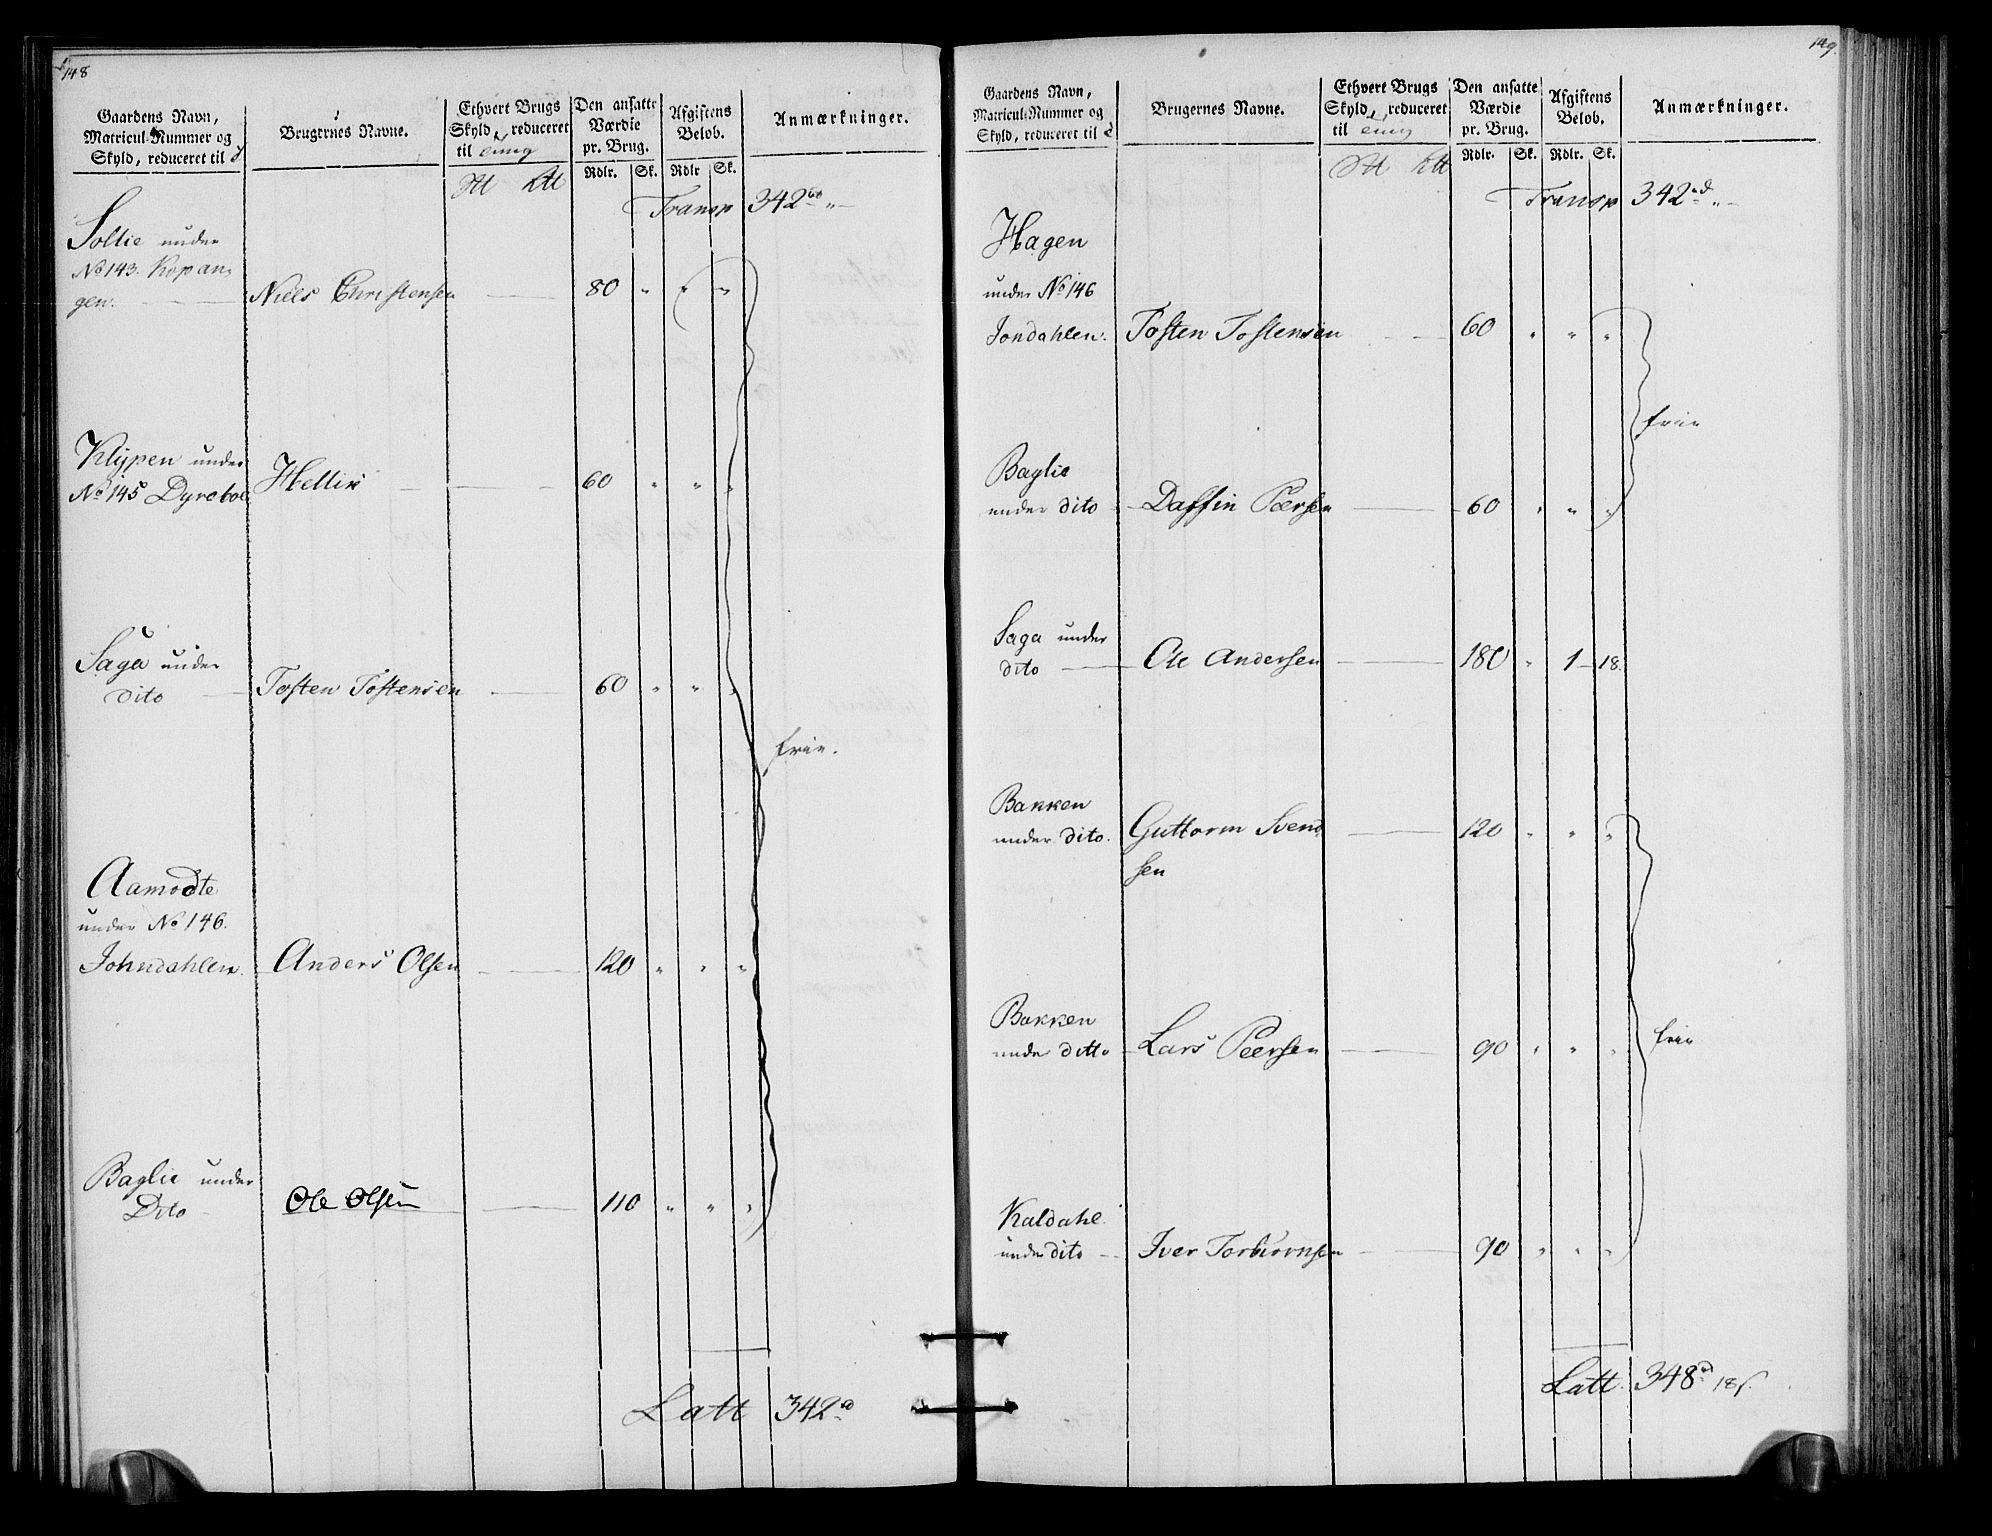 148
Gaardens Navn,
Matricul-Nummer og
Skyld, reduceret til
Brugernes Navne.
Ethvert Brugs
Skyld, reduceret
til
Den ansatte
Værdie
pr. Brug.
Afgiftens
Beløb.
Anmærkninger.
Rdlr. Sk. Rdlr Sk.
Transp 342
Sollie under
No 143. Kopan-
gen. Niels Christensen 80 " " "
Klypen under
No 145 Dyreboe 60 " " "
Saga under
dito Tosten Tostensen 60 " " "
frie.
Aamodte
under No 146.
Johndahlen Anders Olsen 120 " " "
Baglie under
Dito Ole Olsen 110 " " "
Latt 342
149.
Gaardens Navn,
Matricul-Nummer og
Skyld, reduceret til
Brugernes Navne.
Ethvert Brugs
Skyld, reduceret
til
Den ansatte
Værdie
pr. Brug.
Afgiftens
Beløb.
Anmærkninger.
Rdlr. Sk. Rdlr. Sk.
Transp 342
Hagen
under No 146
Jondahlen. Tosten Tostensen 60 " " "
frie
Baglie
under dito Daffin Peersen 60 " " "
Saga under
dito Ole Andersen 180 " 1 18.
Bakken
under dito. Guttorm Svend
sen 120 " " "
Bakken
unde ditto Lars Peersen 90 " " "
frie
Kaldahl
under dito Iver Torbiørnsen 90 " " "
Latt. 348 18